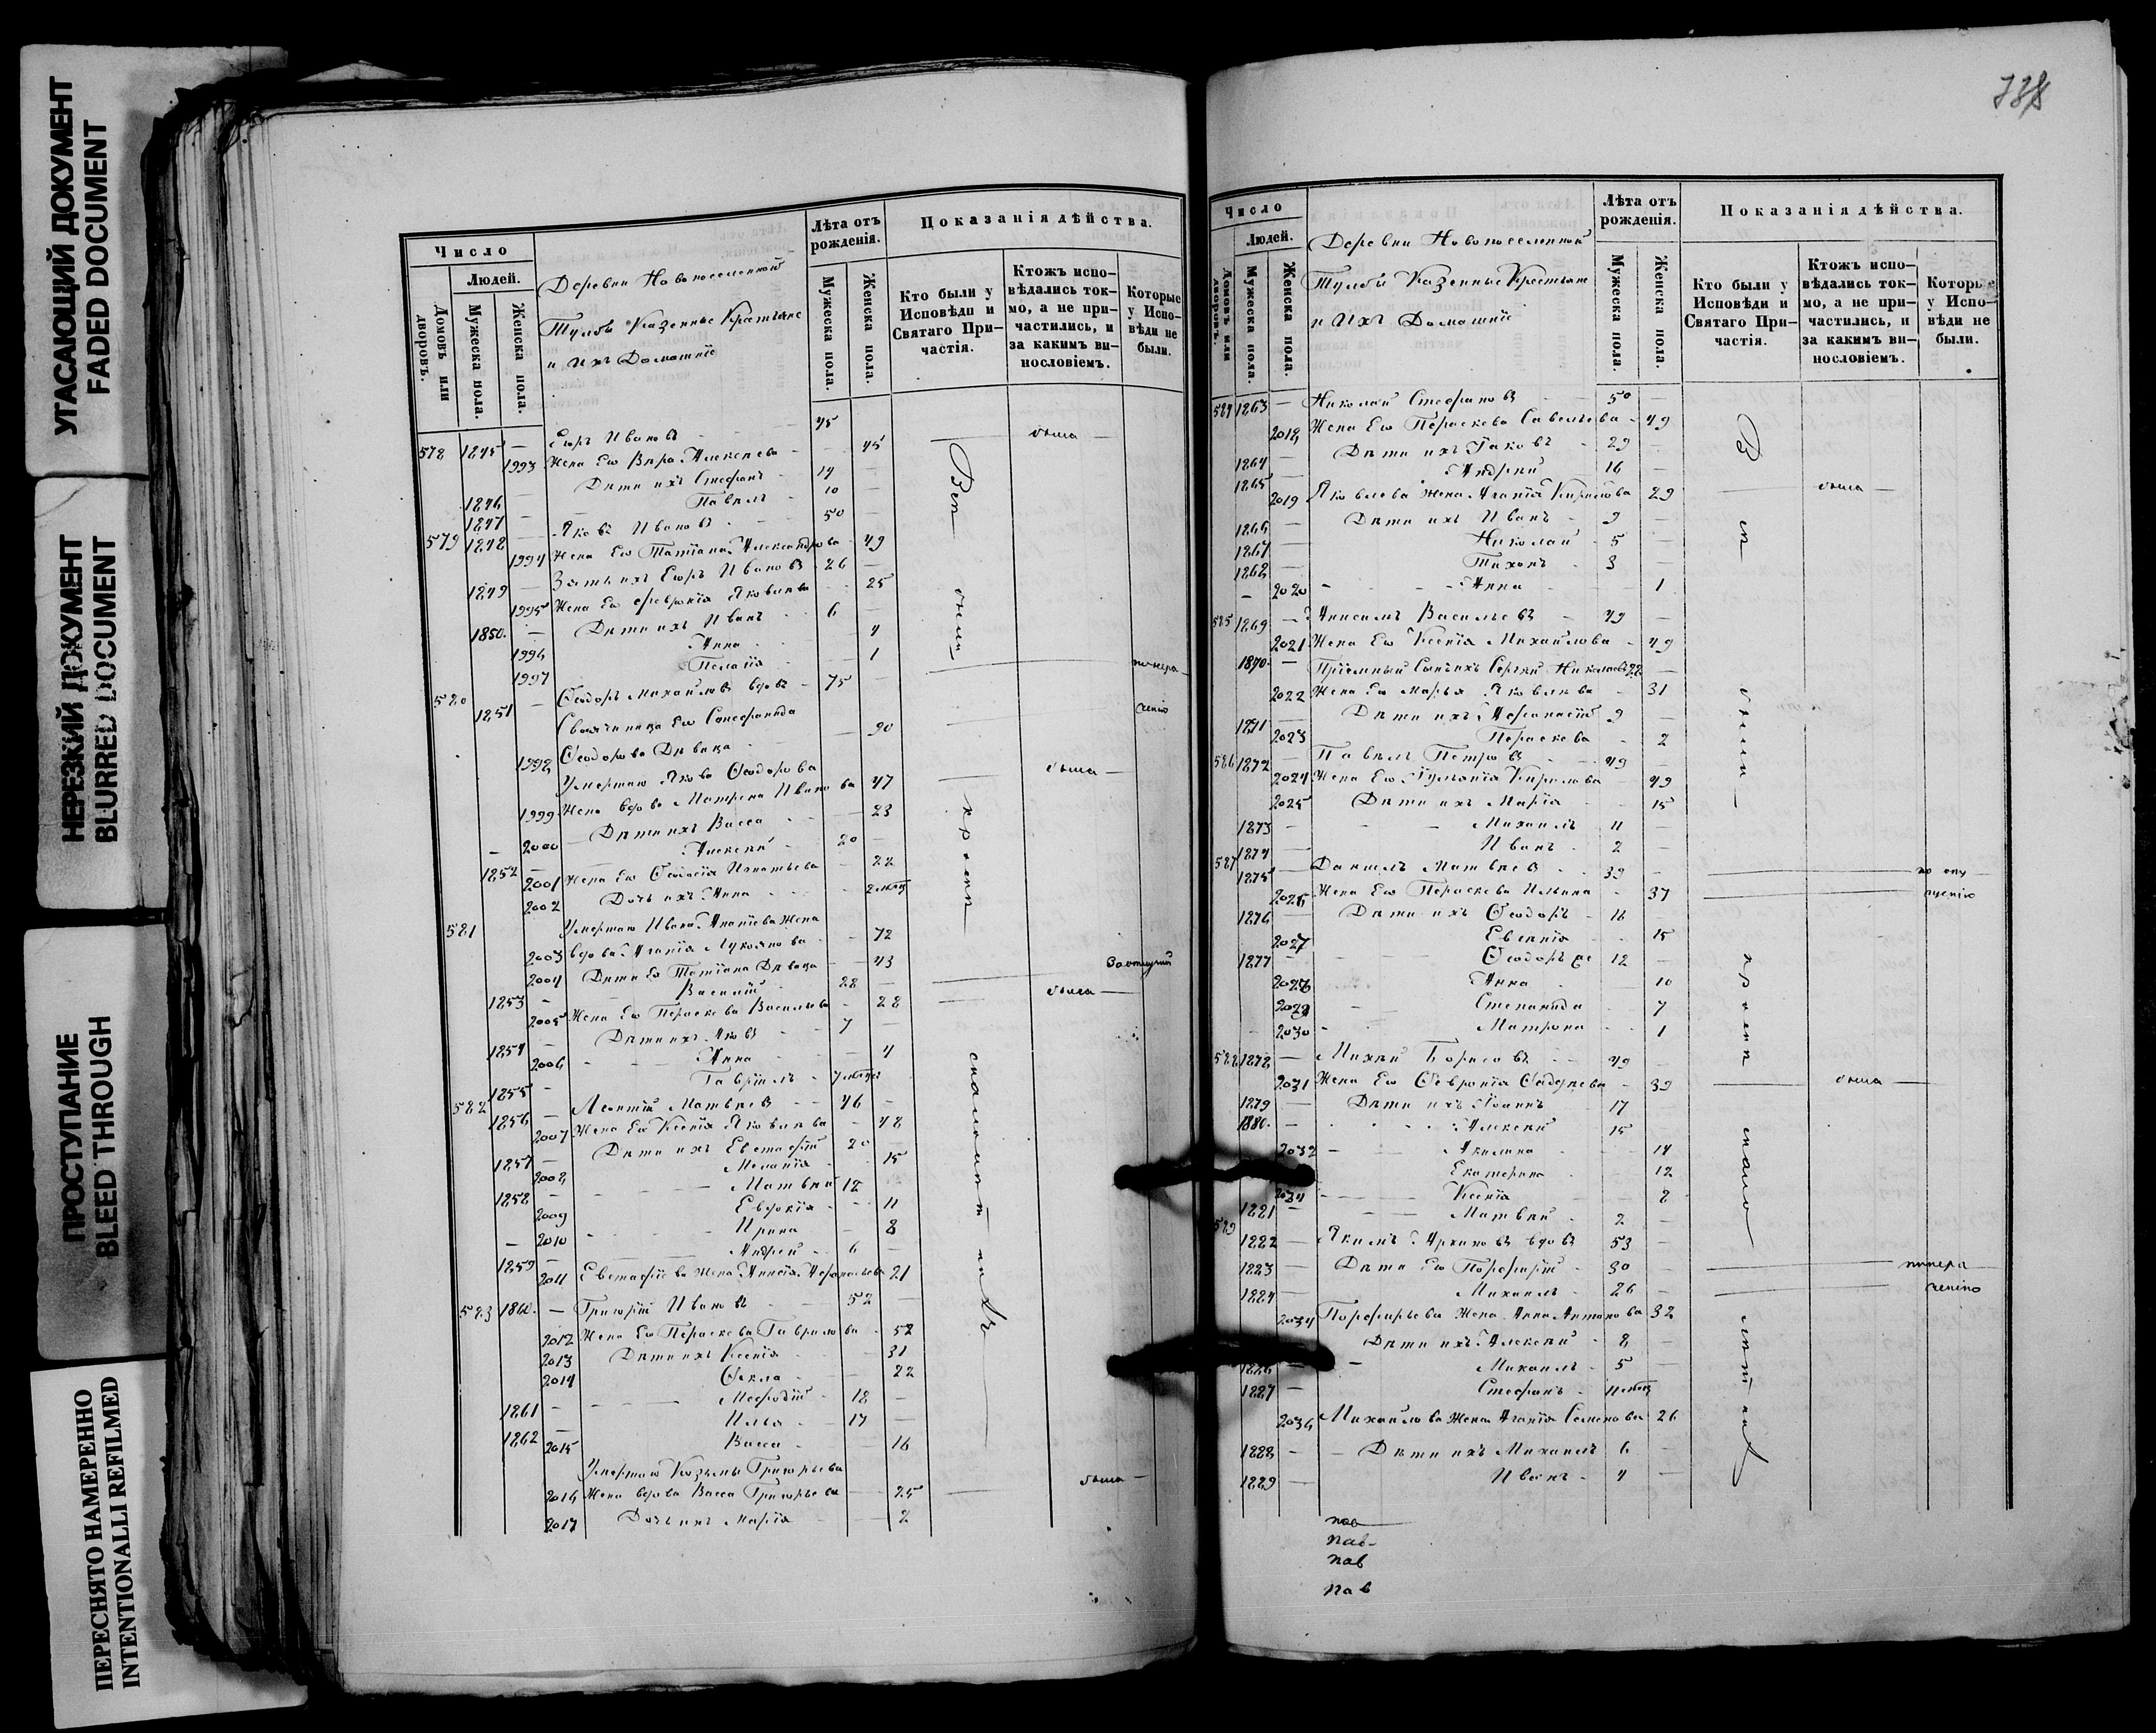 УГАСАЮЩИЙ ДОКУМЕНТ
FADED DOCUMENT
НЕРЕЗКИЙ ДОКУМЕНТ
BLURRED DOCUMENT
ПРОСТУПАНИЕ
BLEED THROUGH
ПЕРЕСНЯТО НАМЕРЕННО
INTENTIONALLI REFILMED
Число
Людей.
Домовъ или дворовъ.
Мужеска пола.
Женска пола.
Деревни Новопоселенной
Тулбы Казенные Крестьяне
и Ихъ Домашніе
Лѣта отъ рожденія.
Мужеска пола.
Женска пола.
Показанія дѣйства.
Кто были у Исповѣди и Святаго Причастія.
Ктожъ исповѣдались токмо, а не причастились, и за какимъ винословіемъ.
Которые у Исповѣди не были.
578 1845 — Егоръ Ивановъ 45
1993 Жена Его Вѣра Алексѣева 45
1846 — Дѣти ихъ Стефанъ 14
1847 — Павелъ 10
579 1848 — Яковъ Ивановъ 50
1994 Жена Его Татіана Александрова 49
1849 — Зять ихъ Егоръ Ивановъ 26
1995 Жена Его Февронія Яковлева 25
1850. — Дѣти ихъ Иванъ 6
1996 Анна 4
1997 Пелагія 1
580 1851 — Ѳеодоръ Михайловъ вдовъ 75
Свояченица Его
1998 Ѳеодорова Дѣвица 90
Умершаго Якова Ѳеодорова
1999 Жена вдова Матрена Иванова 47
2000 Дѣти ихъ Васса 23
1852 — Алексѣй 20
2001 Жена Его Ѳеодосія Игнатьева 22
2002 Дочь ихъ Анна
581 Умершаго Ивана Ананіева Жена
2003 вдова Агапія Лукоянова 72
2004 Дѣти Ея Татіана Дѣвица 43
1853 — Василій 28
2005 Жена Его Параскева Васильева 28
1854 — Дѣти ихъ Яковъ 7
2006 Анна 4
1855 — Гавріилъ
582 1856 — Леонтій Матвѣевъ 46
2007 Жена Его Ксенія Яковлева 48
1857 — Дѣти ихъ Евстафій 20
2008 Меланія 15
1858 — Матвѣй 12
2009 Евдокія 11
2010 Ирина 8
1859 — Андрей 6
2011 Евстафіева Жена Анисія Афанасьева 21
583 1860. — Григорій Ивановъ 52
2012 Жена Его Параскева Гаврилова 52
2013 Дѣти ихъ Ксенія 31
2014 Ѳекла 22
1861 — Мефодій 18
1862 — Илья 17
2015 Васса 16
Умершаго Козьмы Григорьева
2016 Жена вдова Васса Григорьева 25
2017 Дочь ихъ Марія 2
Число
Людей.
Домовъ или дворовъ.
Мужеска пола.
Женска пола.
Деревни Новопоселенной
Тулбы Казенные Крестьяне
и Ихъ Домашніе
Лѣта отъ рожденія.
Мужеска пола.
Женска пола.
Показанія дѣйства.
Кто были у Исповѣди и Святаго Причастія.
Ктожъ исповѣдались токмо, а не причастились, и за какимъ винословіемъ.
Которые у Исповѣди не были.
584 1863 — Николай Стефановъ 50 —
2018 Жена Его Параскева Савельева 49
1864 — Дѣти ихъ Іаковъ 29 —
1865 — Андрей 16 —
2019 Яковлева жена Агапія Кирилова 29
1866 — Дѣти ихъ Иванъ 9
1867 — Николай 5 —
1868 — Тихонъ 3 —
2020 Анна 1
585 1869 — Анисимъ Васильевъ 49 —
2021 Жена Его Ксенія Михайлова 49
1870. — Пріемный Сынъ ихъ Сергѣй Николаевъ
2022 Жена Его Марья Яковлева 31
1871 — Дѣти ихъ Афанасій 9 —
2023 Параскева 2
586 1872 — Павелъ Петровъ 49 —
2024 Жена Его Іуліанія Кирилова 49
2025 Дѣти ихъ Марія 15
1873 — Михаилъ 11 —
1874 — Иванъ 2 —
587 1875 — Даніилъ Матвѣевъ 39 —
2026 Жена Его Параскева Ильина 37
1876 — Дѣти ихъ Ѳеодоръ 18 —
2027 Евгенія 15
1877 — Ѳеодоръ 12 —
2028 Анна 10
2029 Степанида 7
2030 Матрона 1
588 1878 — Михѣй Борисовъ 49
2031 Жена Его Ѳевронія 39
1879 — Дѣти ихъ Іоаннъ 17
1880. — Алексѣй 15
2032 Акилина 14
Екатерина 12
2034 Ксенія 8
1881 — Матвѣй 2 —
589 1882 — Якимъ Архиповъ вдовъ 53 —
1883 — Дѣти Его Порфирій 30 —
1884 — Михаилъ 26 —
Порфирьева Жена Анна Антонова 32
Дѣти ихъ Алексѣй 8 —
1886 — Михаилъ 5 —
1887 — Стефанъ
2036 Михайлова Жена Агапія Семенова 26
1888 — Дѣти ихъ Михаилъ 6 —
1889 — Иванъ 4 —
пав
пав
пав